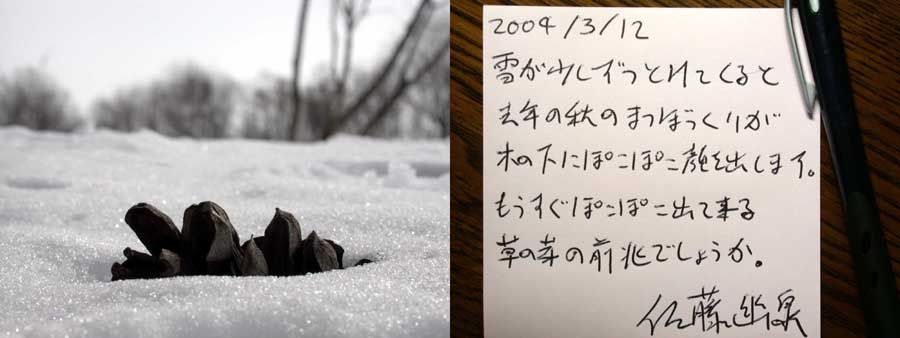 2004/3/12
雪が少しずつとけてくると
去年の秋のまつぼっくりが
木の下にぽこぽこ顔を出します。
もうすぐぽこぽこ出て来る
草の芽の前兆でしょうか。
佐藤